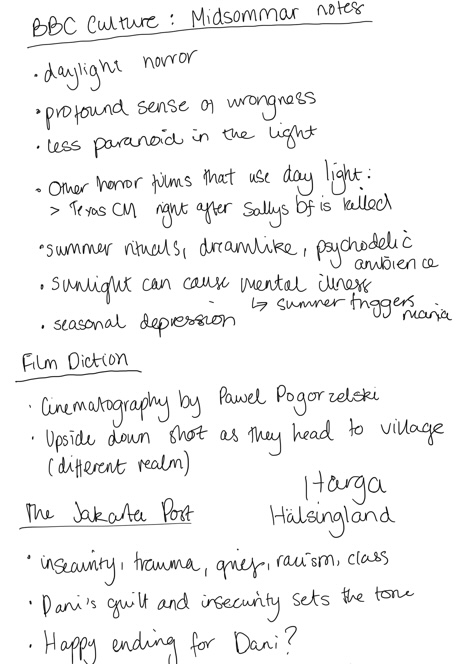 BBC Culture: Midsommar notes
• daylight horror
• profound sense of wrongness
• less paranoid in the light
• Other horror films that use day light:
> Texas CM right after Sallys bf is killed
• summer rituals, dreamlike, psychodelic
ambience
• sunlight can cause mental illness
↳ summer triggers
mania
• seasonal depression
Film Diction
• Cinematography by Pawel Pogorzelski
• Upside down shot as they head to village
(different realm)
Harga
Hälsingland
The Jakarta Post
• insecurity, trauma, grief, racism, class
• Dani's guilt and insecurity sets the tone
• Happy ending for Dani?